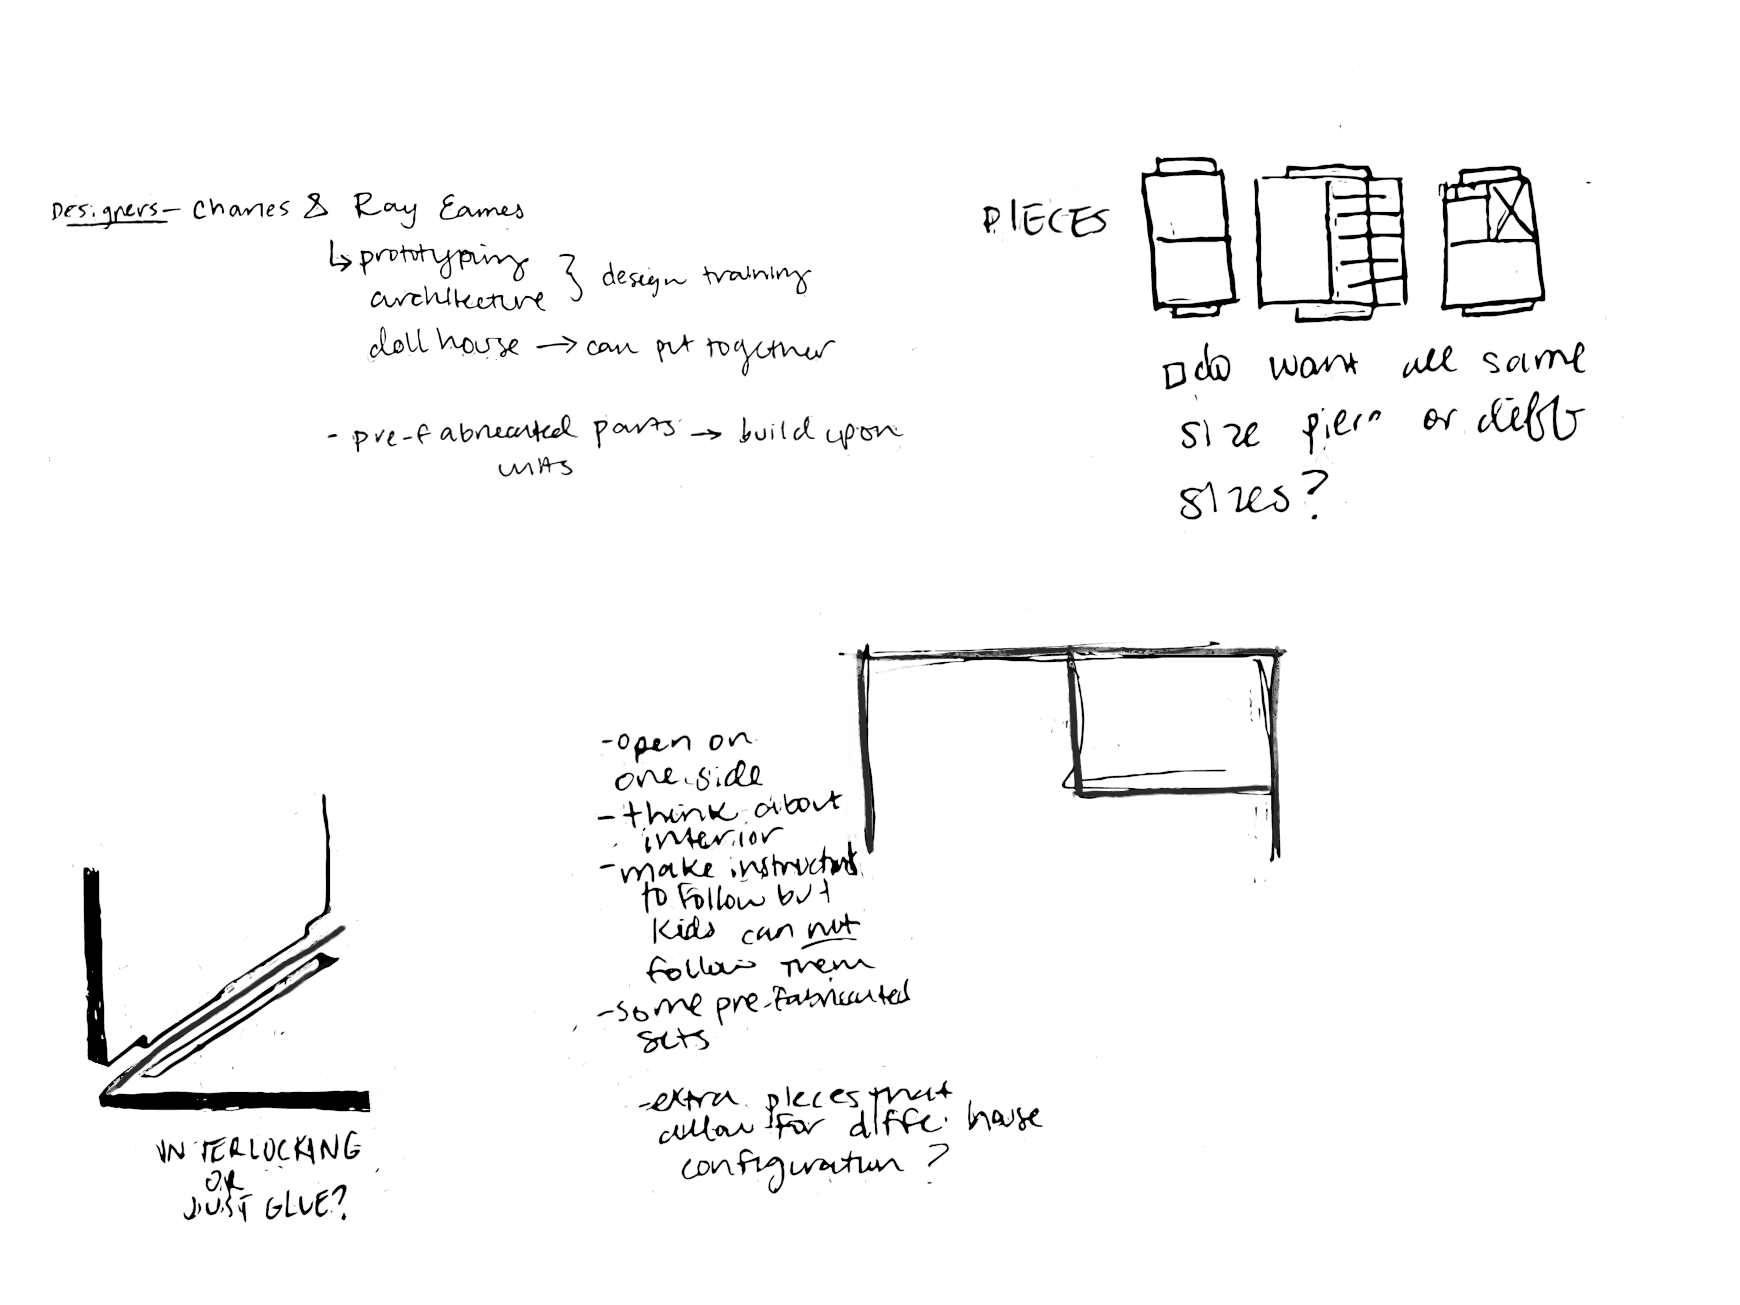 Designers - Charles & Ray Eames
↳ prototyping
architecture } design training
doll house → can put together
- pre-fabricated parts → build upon
PIECES
□ do want all same
size or diff
sizes?
- open on
one side
- think about
interior
- make instructions
to follow but
kids can not
follow them
- some pre-fabricated
sets
- extra pieces that
allow for diffe. house
configuration?
INTERLOCKING
OR
JUST GLUE?